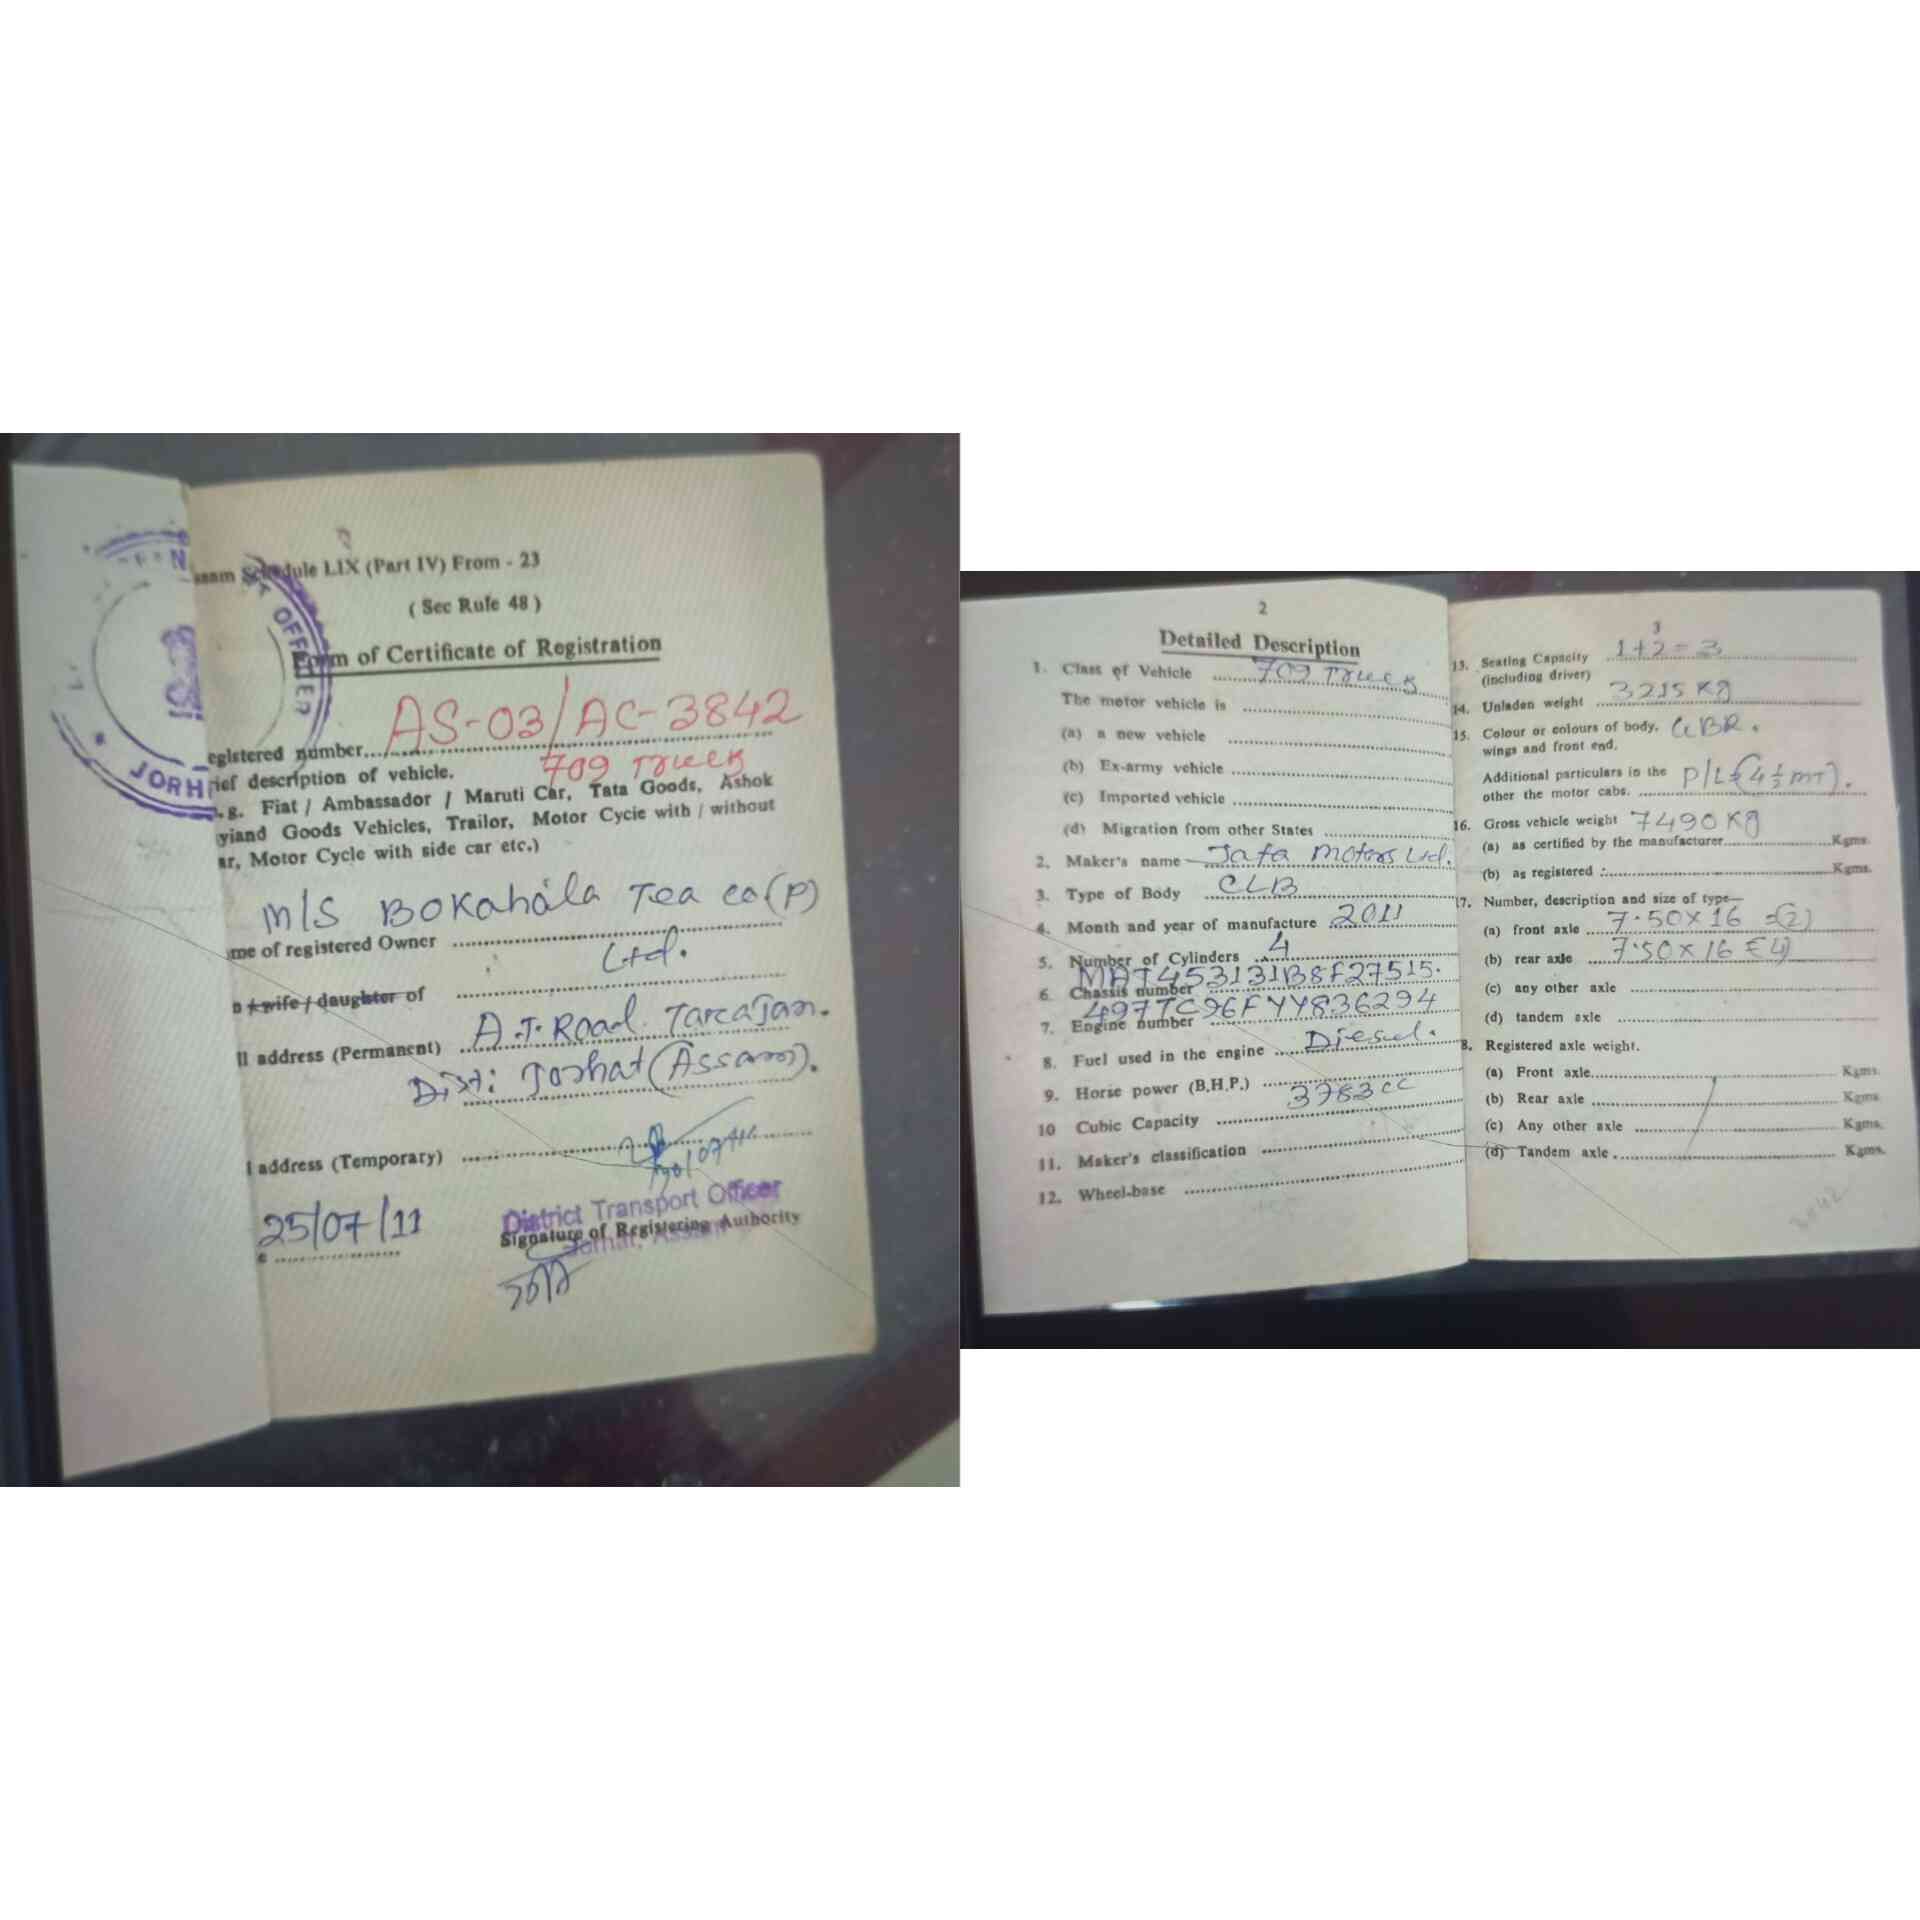 Schedule LIX (Part IV) From - 23
( Sec Rule 48 )
Form of Certificate of Registration
OFFICER
JORH
egistered number AS-03/AC-3842
rief description of vehicle. 709 Truck
.g. Fiat / Ambassador / Maruti Car, Tata Goods, Ashok
yiand Goods Vehicles, Trailor, Motor Cycle with / without
ar, Motor Cycle with side car etc.)
M/S BOKahála Tea co (P)
me of registered Owner
Ltd.
n / wife / daughter of
ll address (Permanent) A.T. Road Tarajan.
Dist: Jorhat (Assam).
l address (Temporary)
District Transport Officer
Signature of Registering Authority
Jorhat, Assam
25/07/11
2
Detailed Description
1. Class of Vehicle 709 Truck
The motor vehicle is
(a) a new vehicle
(b) Ex-army vehicle
(c) Imported vehicle
(d) Migration from other States
2. Maker's name Tata Motors Ltd.
3. Type of Body CLB
4. Month and year of manufacture 2011
5. Number of Cylinders 4
6. Chassis number MAT453131B8F27515.
7. Engine number 497TC96FYY836294
8. Fuel used in the engine Diesel.
9. Horse power (B.H.P.)
10 Cubic Capacity 3783 CC
11. Maker's classification
12. Wheel-base
3
13. Seating Capacity 1+2=3
(including driver)
14. Unladen weight 3215 Kg
15. Colour or colours of body, GBR.
wings and front end.
Additional particulars in the P/L=(4½ MT).
other the motor cabs.
16. Gross vehicle weight 7490 Kg
(a) as certified by the manufacturer Kgms.
(b) as registered : Kgms.
17. Number, description and size of type—
(a) front axle 7.50x16 =(2)
(b) rear axle 7.50x16 =(4)
(c) any other axle
(d) tandem axle
8. Registered axle weight.
(a) Front axle Kgms.
(b) Rear axle Kgms.
(c) Any other axle Kgms.
(d) Tandem axle Kgms.